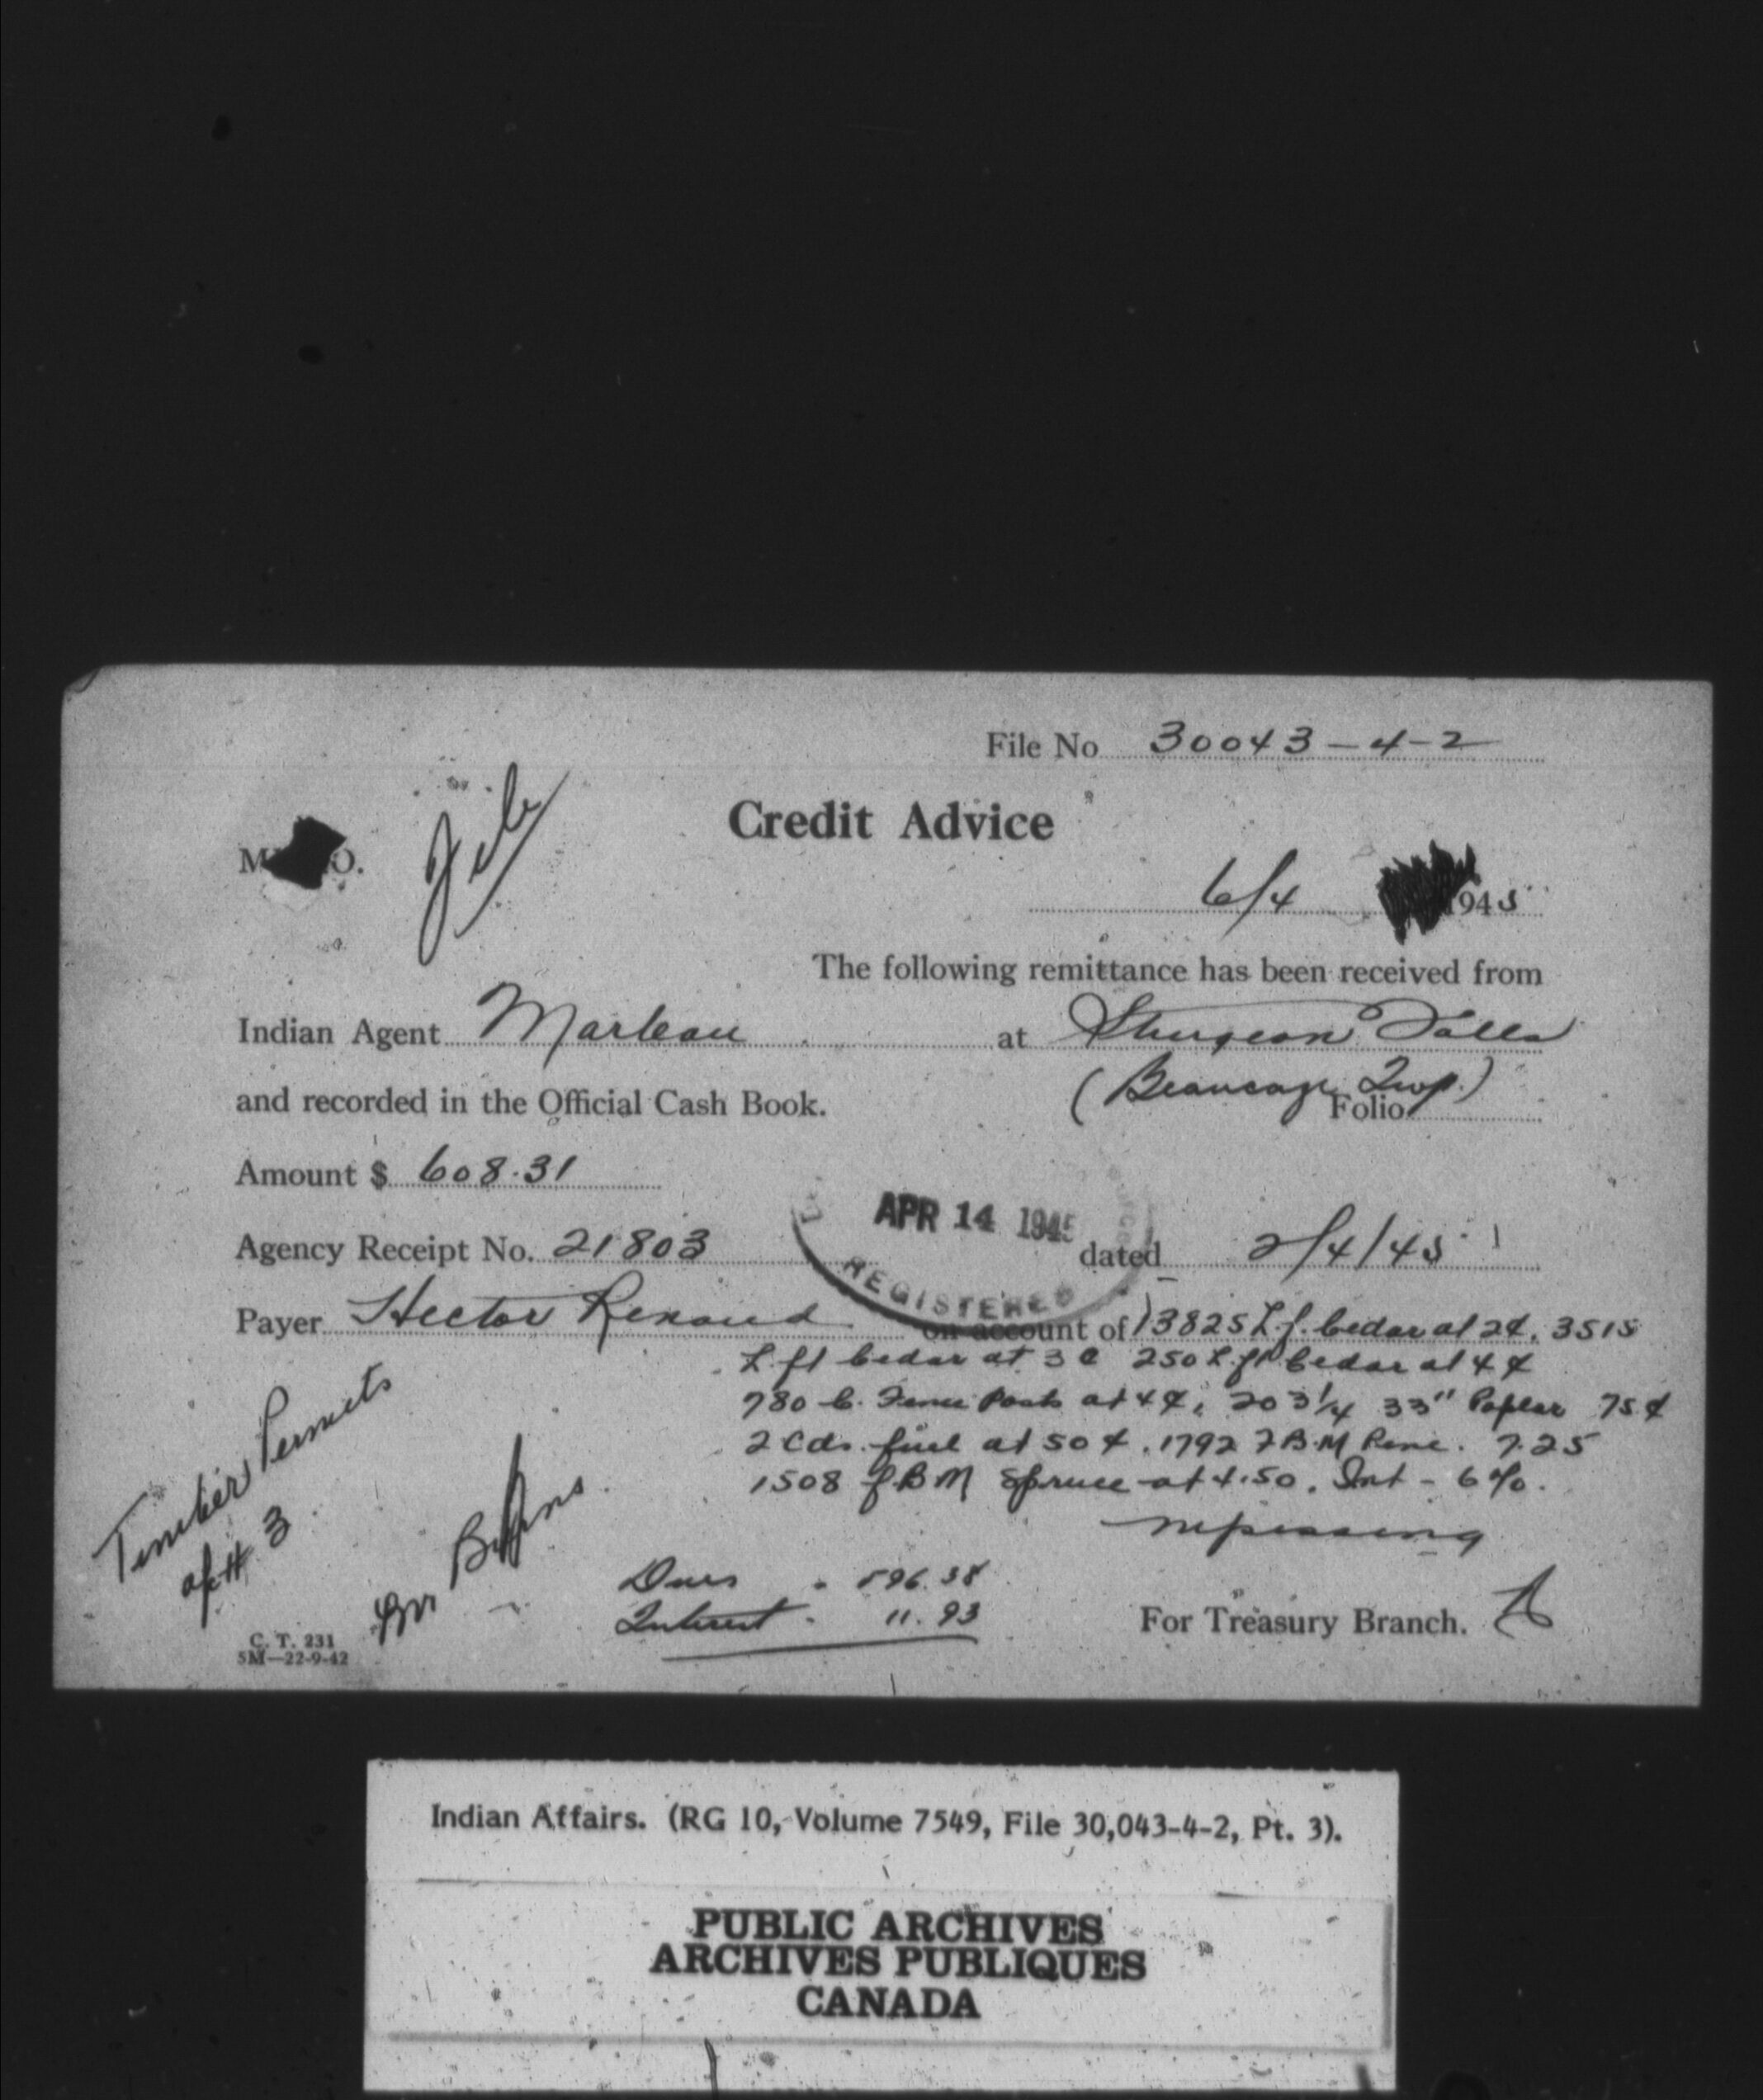 File No 30043-4-2
File
Credit Advice
6/4 1945
The following remittance has been received from
Indian Agent Marleau at Sturgeon Falls
(Beaucage Twp.)
and recorded in the Official Cash Book. Folio
Amount $ 608.31
APR 14 1945
Agency Receipt No. 21803 dated 2/4/45
REGISTERED
Payer Hector Renaud on account of 13825 L.f. Cedar at 2¢, 3515
L.ft Cedar at 3¢ 250 L.ft Cedar at 4¢
780 C. Fence Posts at 4¢, 203 1/4 33" Poplar 75¢
2 Cds. fuel at 50¢. 1792 F.B.M Pine. 7.25
1508 f.B.M Spruce at 4.50. Int - 6%.
Nipissing
Timber Permits
3
Dues - 596.38
Interest - 11.93
For Treasury Branch.
C. T. 231
5M—22-9-42
Indian Affairs. (RG 10, Volume 7549, File 30,043-4-2, Pt. 3).
PUBLIC ARCHIVES
ARCHIVES PUBLIQUES
CANADA